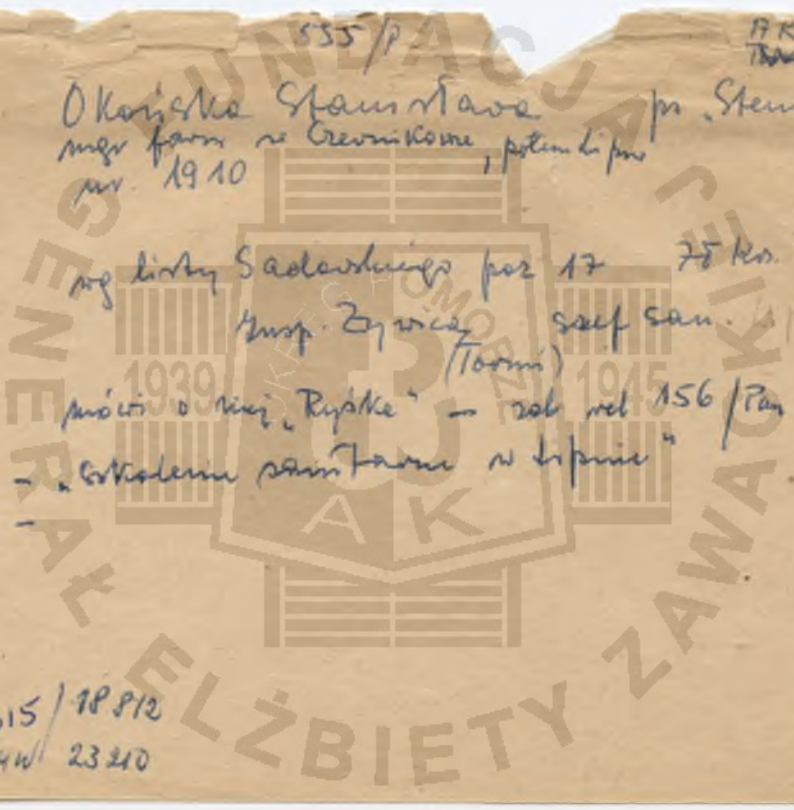 535/P
AK
Okońska Stanisława ps. „Sten
mgr farm w Czernikowie, potem Lipno
ur. 1910
wg listy Sadowskiego poz 17 75 Kos.
Insp. Żywica szef san.
(Toruń)
mówi o niej „Ryśka" - zob rel 156/Pan
- „Szkolenie sanitarne w Lipnie"
-
515/18812
23210
FUNDACJA GENERAŁ ELŻBIETY ZAWACKIEJ
OKRĘG POMORZE
1939 1945
AK